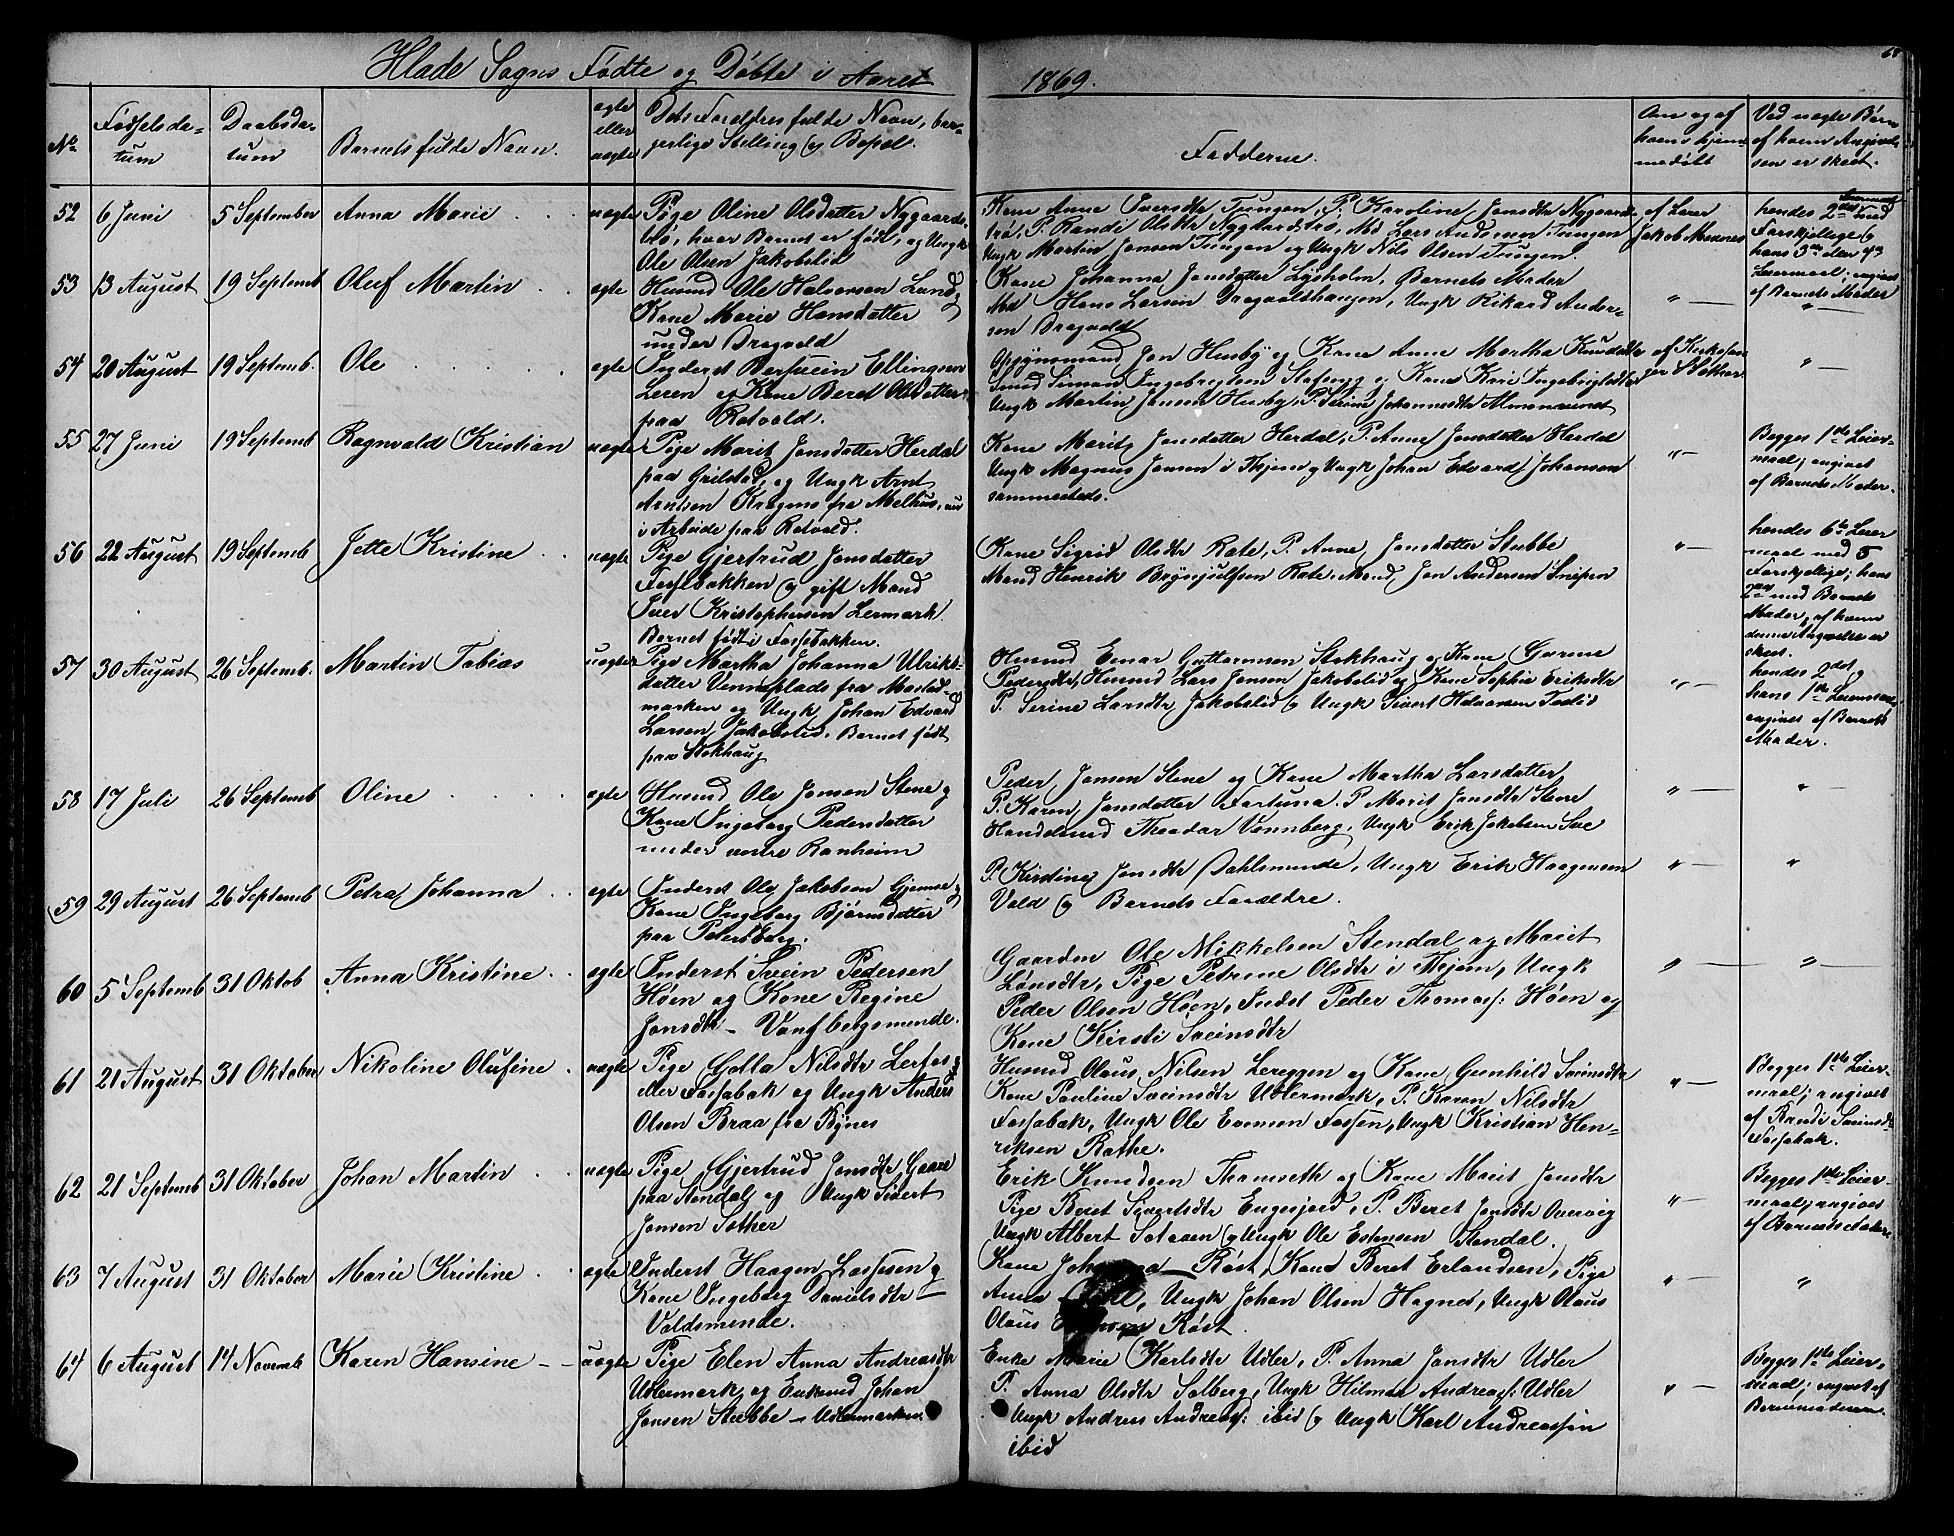 68
Hlade Sogns Fødte og Døbte i Aaret 1869.
No
Fødselsda-
tum
Daabsda-
tum
Barnets fulde Navn.
ægte
eller
uægte
Dets Forældres fulde Navn, bor-
gerlige Stilling og Bopæl.
Fadderne.
Om og af
hvem hjem-
medøbt
Ved uægte Børn
af hvem Angivel-
sen er skeet.
52 6 Juni 5 September Anna Marie uægte
Pige Oline Olsdatter Nygaards-
trø, hvor Barnet er født, og Ungk
Ole Olsen Jakobslid
Kone Anne Iversdtr Tungen, P. Karoline Jonsdtr Nygaards-
trø, P. Randi Olsdtr Nygaardstrø, Md Lars Andersen Tungen
Ungk Martin Jonsen Tungen og Ungk Nils Olsen Tungen.
af Lærer
Jakob Moxnes
hendes 2det med
Forskjellige og
hans 3die den
Leiermaal; angivet
af Barnets Moder
53 13 August 19 Septemb Oluf Martin ægte
Husmd Ole Halvorsen Lund og
Kone Marie Hansdatter
under Dragvold
Kone Johanna Jonsdatter Lysholm, Barnets Moder
Md Hans Larsen Dragvoldshaugen, Ungk Rikard Ander-
sen Dragvold
" —
" —
54 20 August 19 Septemb. Ole ægte
Inderst Bersvein Ellingsen
Leren og Kone Beret Olsdatter
paa Rotvold.
Opsynsmand Jon Husby og Kone Anne Martha Knudsdtr
Smed Simon Ingebrigtsen Stafseng og Kone Kari Ingebrigtsdtr
Ungk Martin Jonsen Husby, P. Serine Johannesdtr
af Kirkesan-
ger
" —
55 27 Juni 19 Septemb Ragnvald Kristian uægte
Pige Marit Jonsdatter Herdal
paa Grilstad, og Ungk Arnt
Arntsen Kregnes fra Melhus, nu
i Arbeide paa Rotvold.
Kone Marit Jonsdatter Herdal, P. Anne Jonsdatter Herdal
Ungk Magnus Jonsen i Thjem og Ungk Johan Edvard Johansen
sammesteds.
" —
Begges 1ste Leier-
maal; angivet
af Barnets Moder.
56 22 August 19 Septemb Jette Kristine uægte
Pige Gjertrud Jonsdatter
Fossebakken og gift Mand
Iver Kristophersen Lermark.
Barnet født i Fossebakken.
Kone Sigrid Olsdtr Rate, P. Anne Jonsdatter Stubbe
Mand Henrik Brynjulfsen Rate, Mand Jon Andersen
" —
hendes 6te Leier
maal med 5
Forskjellige; hans
2det med Barnets
Moder, af hvem
denne Angivelse er
skeet.
57 30 August 26 Septemb. Martin Tobias uægte
Pige Martha Johanna Ulriks-
datter Venneplads fra Mostad-
marken og Ungk Johan Edvard
Larsen Jakobslid. Barnet født
paa Stokhaug
Husmd Einar Guttormsen Stokhaug og Kone Gurine
Pedersdtr, Husmd Lars Jonsen Jakobslid og Kone Sophie Eriksdtr
P. Serine Larsdtr Jakobslid og Ungk Sivert Halvorsen Teslid
" —
hendes 2det og
hans 1ste Leiermaal,
angivet af Barnets
Moder.
58 17 Juli 26 Septemb Oline ægte
Husmd Ole Jonsen Stene og
Kone Ingeborg Pedersdatter
under vestre Ranheim
Peder Jonsen Stene og Kone Martha Larsdatter
P. Karen Jonsdatter Fortuna. P Marit Jonsdtr Stene
Handelsmd Theodor Vennberg, Ungk Erik Jakobsen Sve
" —
" —
59 29 August 26 Septemb Petra Johanna ægte
Inderst Ole Jakobsen Gjemse og
Kone Ingeborg Bjørnsdatter
paa Petersborg.
P. Kirstine Jonsdtr Dahlsmunde, Ungk Erik Haagensen
Vold og Barnets Forældre.
" —
"
60 5 Septemb 31 Oktob Anna Kristine ægte
Inderst Svein Pedersen
Høen og Kone Regine
Jonsdtr —
Gaardm Ole Mikkelsen Stendal og Marit
Lønsdtr, Pige Petrine Olsdtr i Thjem, Ungk
Peder Olsen Høen, Indst Peder Thomass: Høen og
Kone Kirsti Sveinsdtr
" —
" —
61 21 August 31 Oktober Nikoline Olufine uægte
Pige Golla Nilsdtr Lerfos el-
eller Fossebak og Ungk Anders
Olsen Braa fra Bynes
Husmd Olaus Nilsen Lereggen og Kone Gunhild Sveinsdtr
Kone Pauline Sveinsdtr Udlermark, P. Karen Nilsdtr
Fossebak, Ungk Ole Evensen Fossen, Ungk Kristian Hen-
riksen Rathe.
" —
Begges 1ste Leier-
maal; angivet
af Randi Sveinsdtr
Fossebak.
62 21 Septemb 31 Oktober Johan Martin uægte
Pige Gjertrud Jonsdtr Gaare
paa Stendal og Ungk Sivert
Jonsen Sother
Erik Knudsen Thomseth og Kone Marit Jonsdtr
Pige Beret Sivertsdtr Engesfjord, P. Beret Jonsdtr Overvig
Ungk Albert Solaaen og Ungk Ole Estensen Stendal.
" —
Begges 1ste Leier-
maal; angivet
af Barnets Fader.
63 7 August 31 Oktober Marie Kristine ægte
Inderst Haagen Lassesen og
Kone Ingeborg Danielsdtr —
Voldsmende.
Kone Røst, Kone Beret Erlandsen, Pige
Anna Ungk Johan Olsen Hagnes, Ungk Olaus
Olaus Røst.
" —
"
64 6 August 14 Novemb Karen Hansine — uægte
Pige Elen Anna Andreasdtr
Udlermark, og Enkemd Johan
Jonsen Stubbe — Udlermarken
Enke Marie Karlsdtr Udler, P. Anna Jonsdtr Udler
P. Anna Olsdtr Solberg, Ungk Hilmar Andreass: Udler
Ungk Andreas Andreass: ibid og Ungk Karl Andreassen
ibid
" —
Begges 1ste Leier-
maal; angivet af
Barnemoderen.